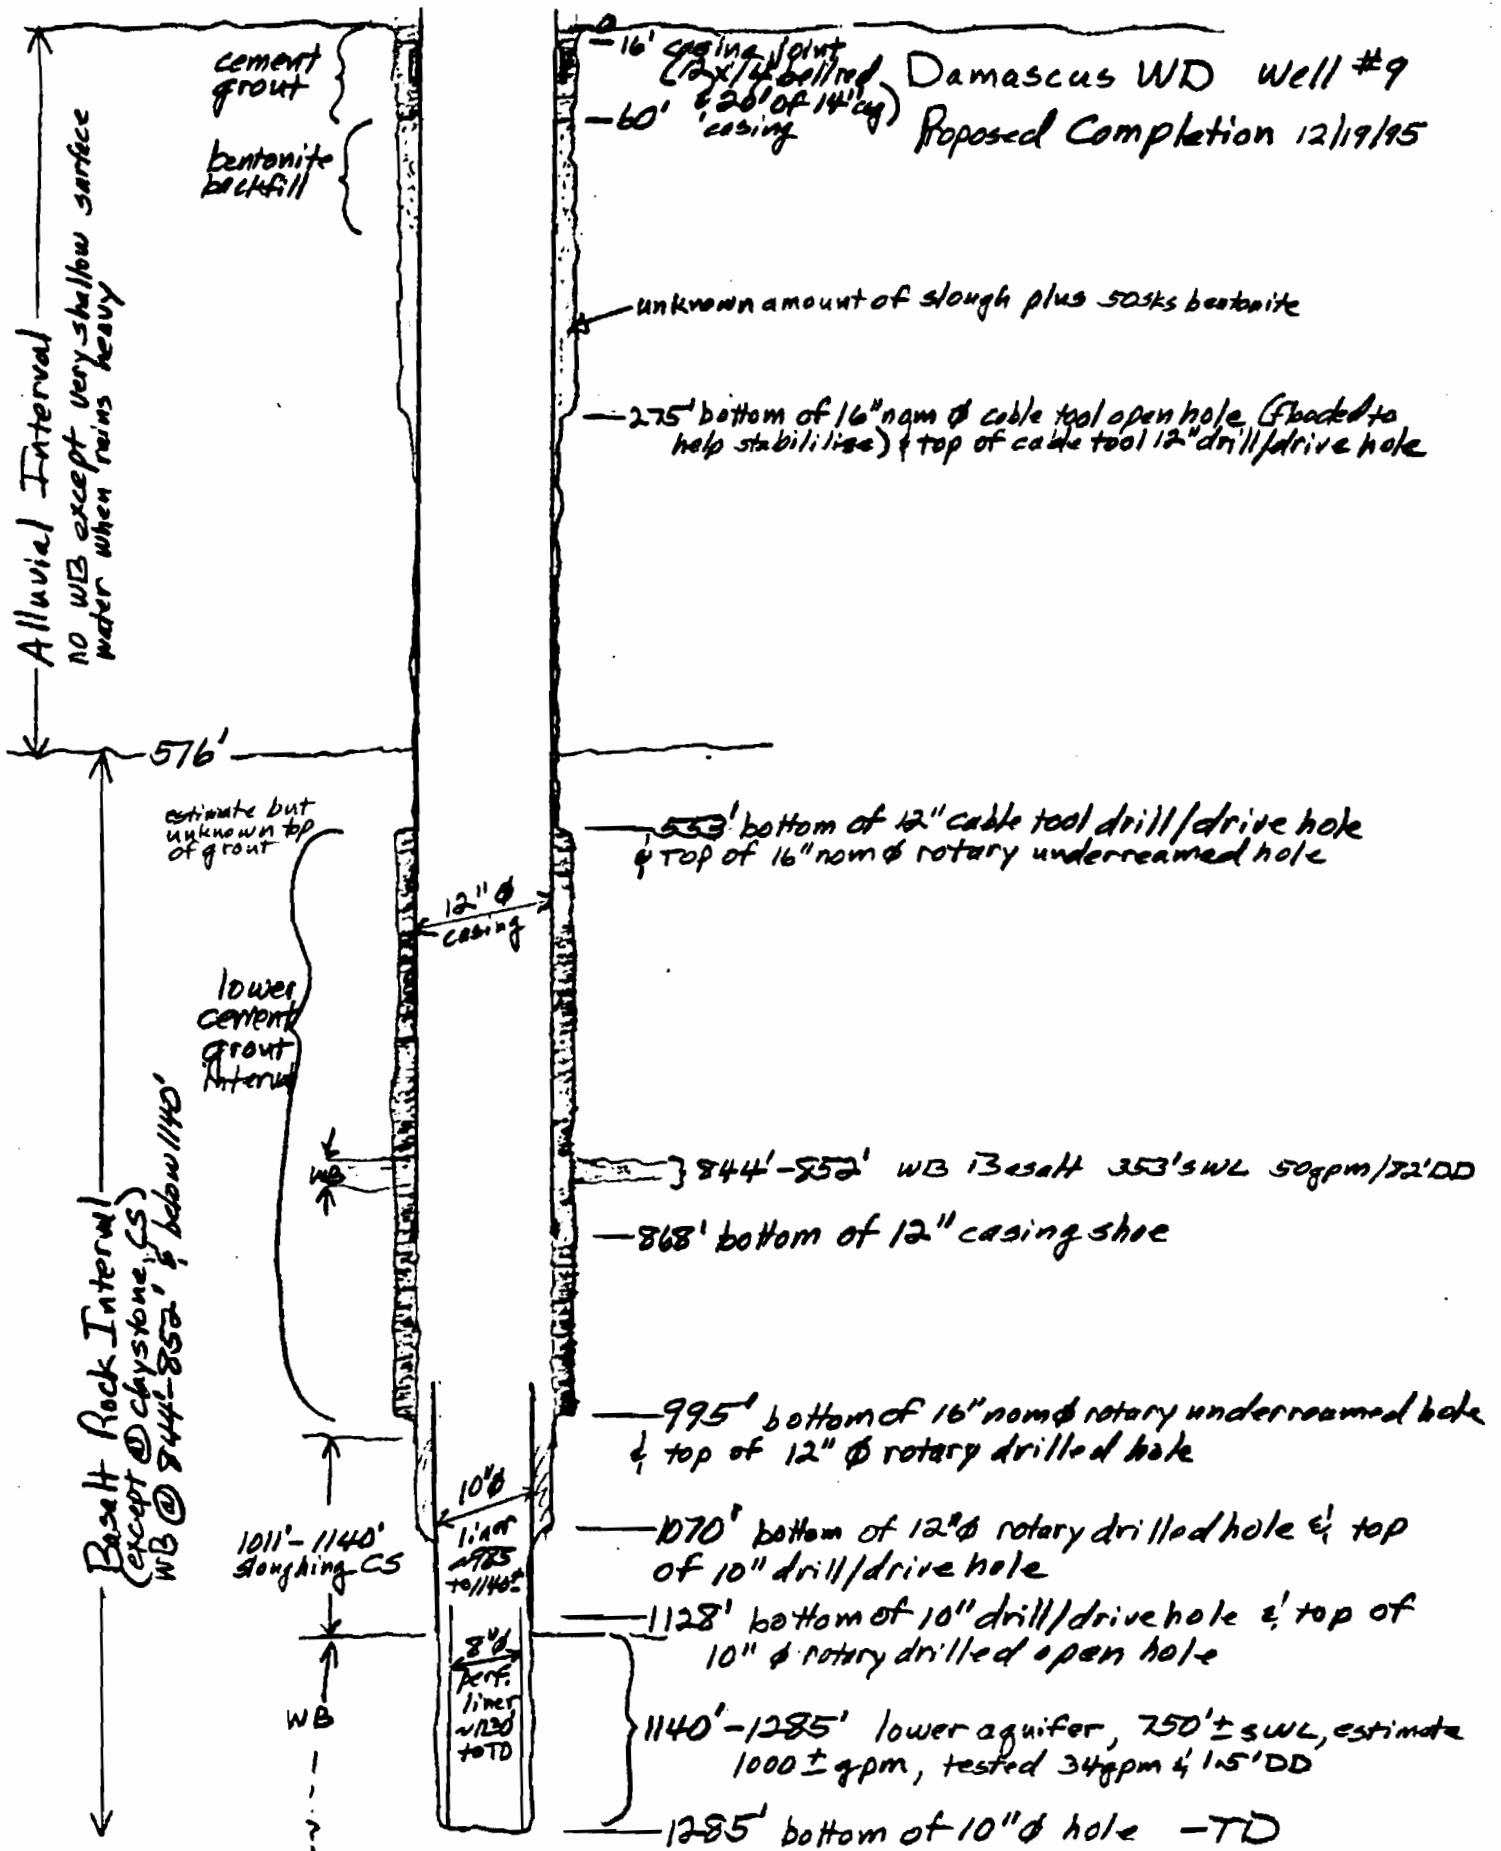 Damascus WD Well #9
Proposed Completion 12/19/95
0
16' casing joint
(12x14 bell red
& 20' of 14" csg)
60' casing
cement
grout
bentonite
backfill
Alluvial Interval
no WB except very shallow surface
water when rains heavy
unknown amount of slough plus 50sks bentonite
275' bottom of 16" nom ø cable tool open hole (flooded to
help stabililize) & top of cable tool 12" drill/drive hole
576'
estimate but
unknown top
of grout
553' bottom of 12" cable tool drill/drive hole
& Top of 16" nom ø rotary underreamed hole
12" ø
casing
lower
cement
grout
interval
Basalt Rock Interval
(except @ claystone, CS)
WB @ 844'-852' & below 1140'
WB
844'-852' WB Basalt 353' SWL 50gpm/82'DD
868' bottom of 12" casing shoe
995' bottom of 16" nom ø rotary underreamed hole
& top of 12" ø rotary drilled hole
10"ø
liner
~985
to 1140±
1011'-1140'
sloughing CS
1070' bottom of 12"ø rotary drilled hole & top
of 10" drill/drive hole
1128' bottom of 10" drill/drive hole & top of
10" ø rotary drilled open hole
8"ø
perf.
liner
~1130'
to TD
WB
1140'-1285' lower aquifer, 750'± SWL, estimate
1000± gpm, tested 34gpm & 1.5'DD
1285' bottom of 10"ø hole -TD